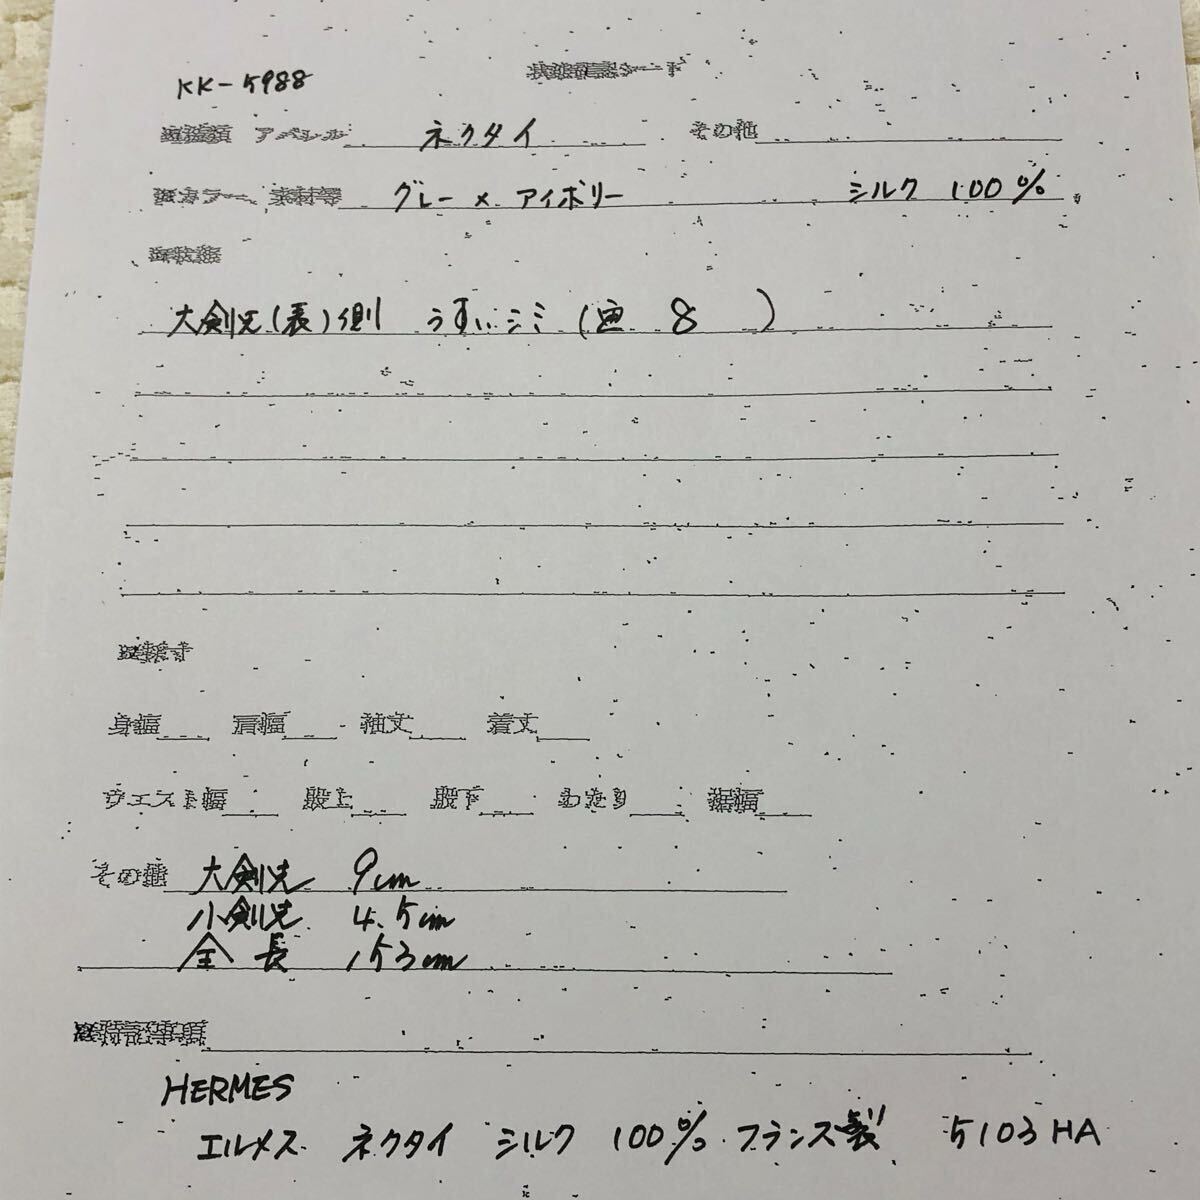 KK-5988
アパレル ネクタイ その他
カラー、素材等 グレー × アイボリー シルク 100%
大剣先(表)側 うすいシミ(画 8 )
身幅 肩幅 袖丈 着丈
ウエスト幅 股上 股下 わたり 裾幅
その他 大剣先 9cm
小剣先 4.5cm
全長 153cm
特記事項
HERMES
エルメス ネクタイ シルク 100% フランス製 5103HA